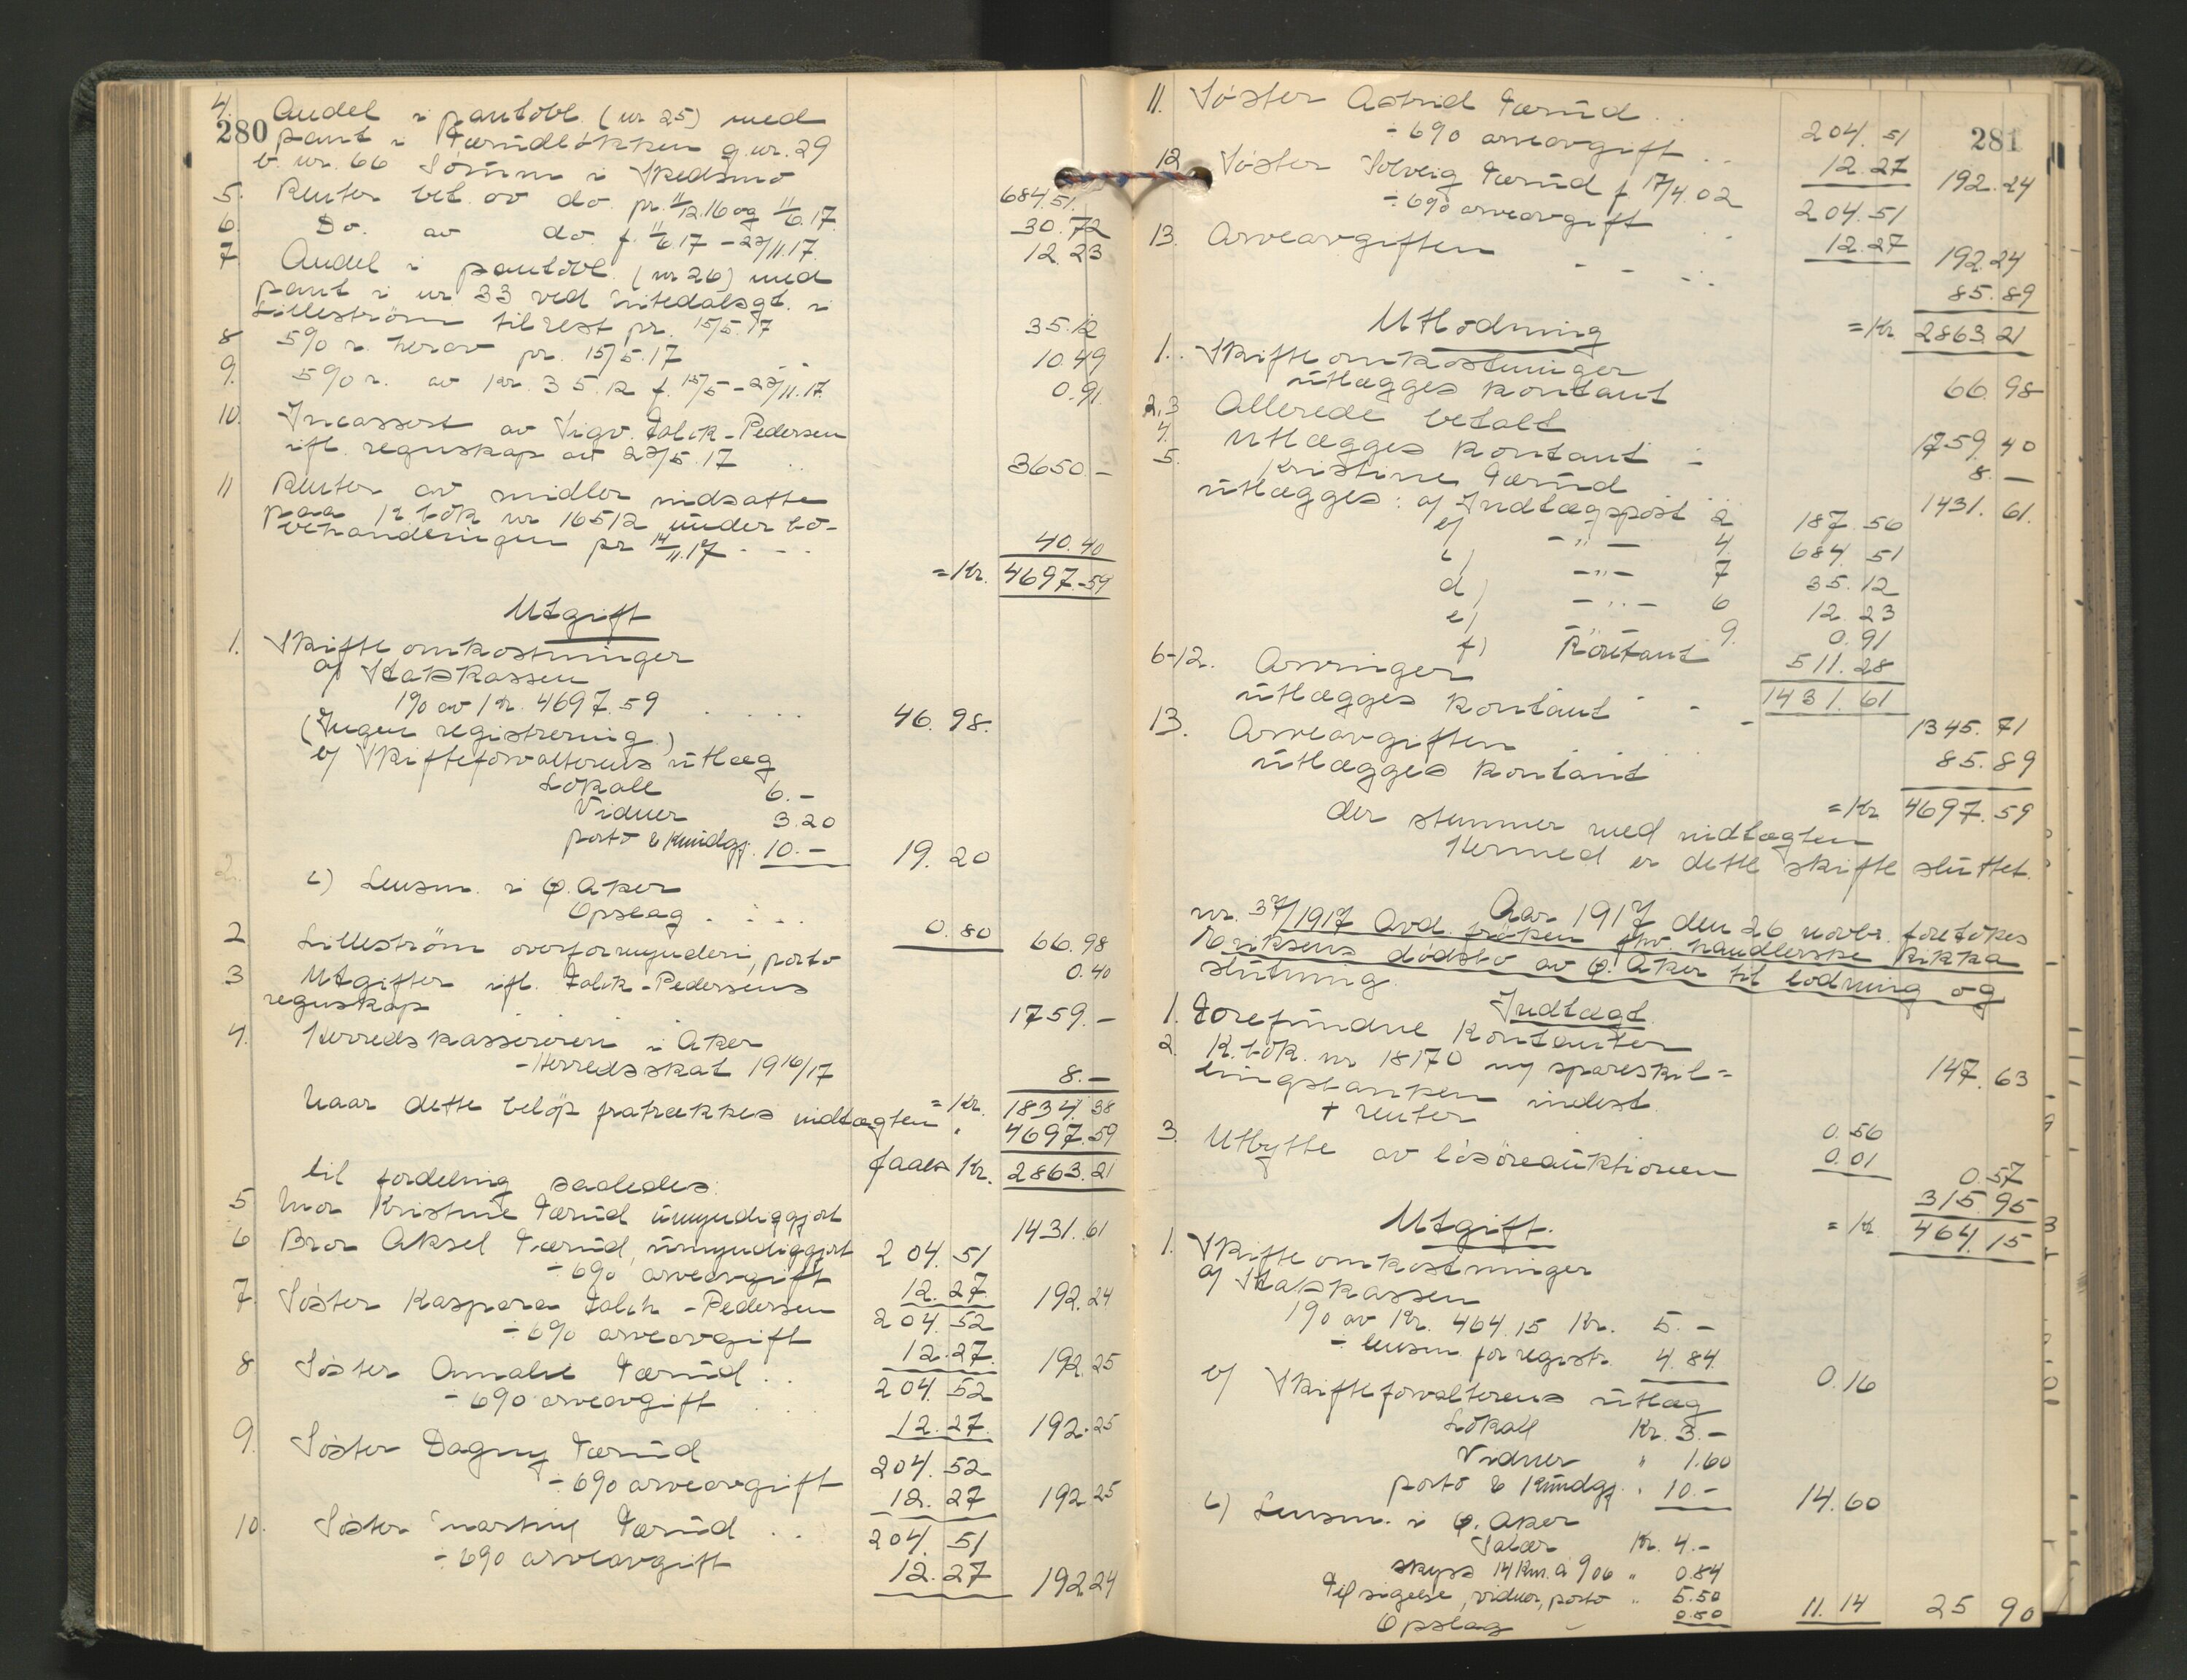 280
4. Andel i pantobl. (nr 25) med
pant i Færudløkken g.nr. 29
b. nr. 66 Sörum i Skedsmo 684.51.
5. Renter bet. av do. pr. 11/12.16 og 11/6.17. 30.72
6. Do. av do. f. 11/6.17 - 23/11.17. 12.23
7 Andel i pantobl. (nr 26) med
pant i nr 33 ved Nitedalsgt. i
Lilleström til rest pr. 15/5.17 35.12
8 5% r. herav pr. 15/5.17 10.49
9. 5% r. av Kr. 35.12 f. 15/5 - 23/11.17. 0.91.
10. Incassert av Sigv. Falck-Pedersen
ifl. regnskap av 23/5.17 .. 3650.-
11 Renter av midler indsatte
paa K bok nr 16512 under bo-
behandlingen pr 14/11.17 - - - 40.40
= Kr. 4697.59
Utgift
1. Skifteomkostninger
a) Statskassen
1% av Kr. 4697.59 .... 46.98.
(Ingen registrering.)
b) Skifteforvalterens utlæg
Lokale 6.-
Vidner 3.20
porto & Kundgj. 10.- 19.20
c) Lensm. i Ø. Aker
Opslag .... 0.80 66.98
2 Lilleström overformynderi, porto 0.40
3 Utgifter ifl. Falck-Pedersens
regnskap 1759.-
4. Herredskassereren i Aker
- Herredsskat 1916/17 8.-
= Kr. 1834.38
Naar dette belöp fratrækkes indtægten " 4697.59
faaes Kr. 2863.21
til fordeling saaledes:
5 Mor Kristine Færud umyndiggjort 1431.61
6 Bror Aksel Færud, umyndiggjort 204.51
÷ 6% arveavgift 12.27. 192.24
7. Söster Kaspara Falch-Pedersen 204.52
÷ 6% arveavgift 12.27. 192.25
8 Söster Amalie Færud .. 204.52
÷ 6% arveavgift ... 12.27. 192.25
9. Söster Dagny Færud 204.52
÷ 6% arveavgift 12.27 192.25
10. Söster Martine Færud .. 204.51
÷ 6% arveavgift 12.27 192.24
281
11. Söster Astrid Færud .. 204.51
÷ 6% arveavgift .. 12.27 192.24
12 Söster Solveig Færud f 17/4.02 204.51
÷ 6% arveavgift .. 12.27 192.24
13. Arveavgiften - - -. 85.89
= Kr 2863.21
Utlodning
1. Skifteomkostninger
utlægges kontant 66.98
2,3 Allerede betalt 1759.40
4. Utlægges kontant - 8.-
5. Kristine Færud 1431.61.
utlægges: a) Indtægspost 2 187.56
b) - " - 4. 684.51
c) - " - 7 35.12
d) - " - 6 12.23
e) 9. 0.91
f) Kontant 511.28
1431.61
6-12. Arvinger
utlægges kontant - - - 1345.71
13. Arveavgiften
utlægges kontant 85.89
= Kr 4697.59
der stemmer med indtægten
Hermed er dette skifte sluttet.
Aar 1917 den 26 novbr. foretokes
nr. 37/1917 Avd. fröken fhv. handlerske Rikka
Eriksens dödsbo av Ø. Aker til lodning og
slutning.
Indtægt.
1. Forefundne Kontanter 147.63
2. K.bok. nr 18170 m/ spareskil=
lingsbanken indest. 0.56
+ renter 0.01 0.57
3. Utbytte av lösöreauktionen 315.95
= Kr 464.15
Utgift.
1. Skifteomkostninger
a) Statskassen
1% av Kr. 464.15 Kr. 5.-
÷ lensm. for registr. 4.84 0.16
b) Skifteforvalterens utlæg
Lokale Kr. 3.-
Vidner " 1.60
porto & Kundgj. " 10.- 14.60
c) Lensm. i Ø. Aker
Salær Kr. 4.-
skyss 14 Km. à %06 " 0.84
Tilsigelse, vidner, porto " 5.50
Opslag - 0.80 11.14 25.90